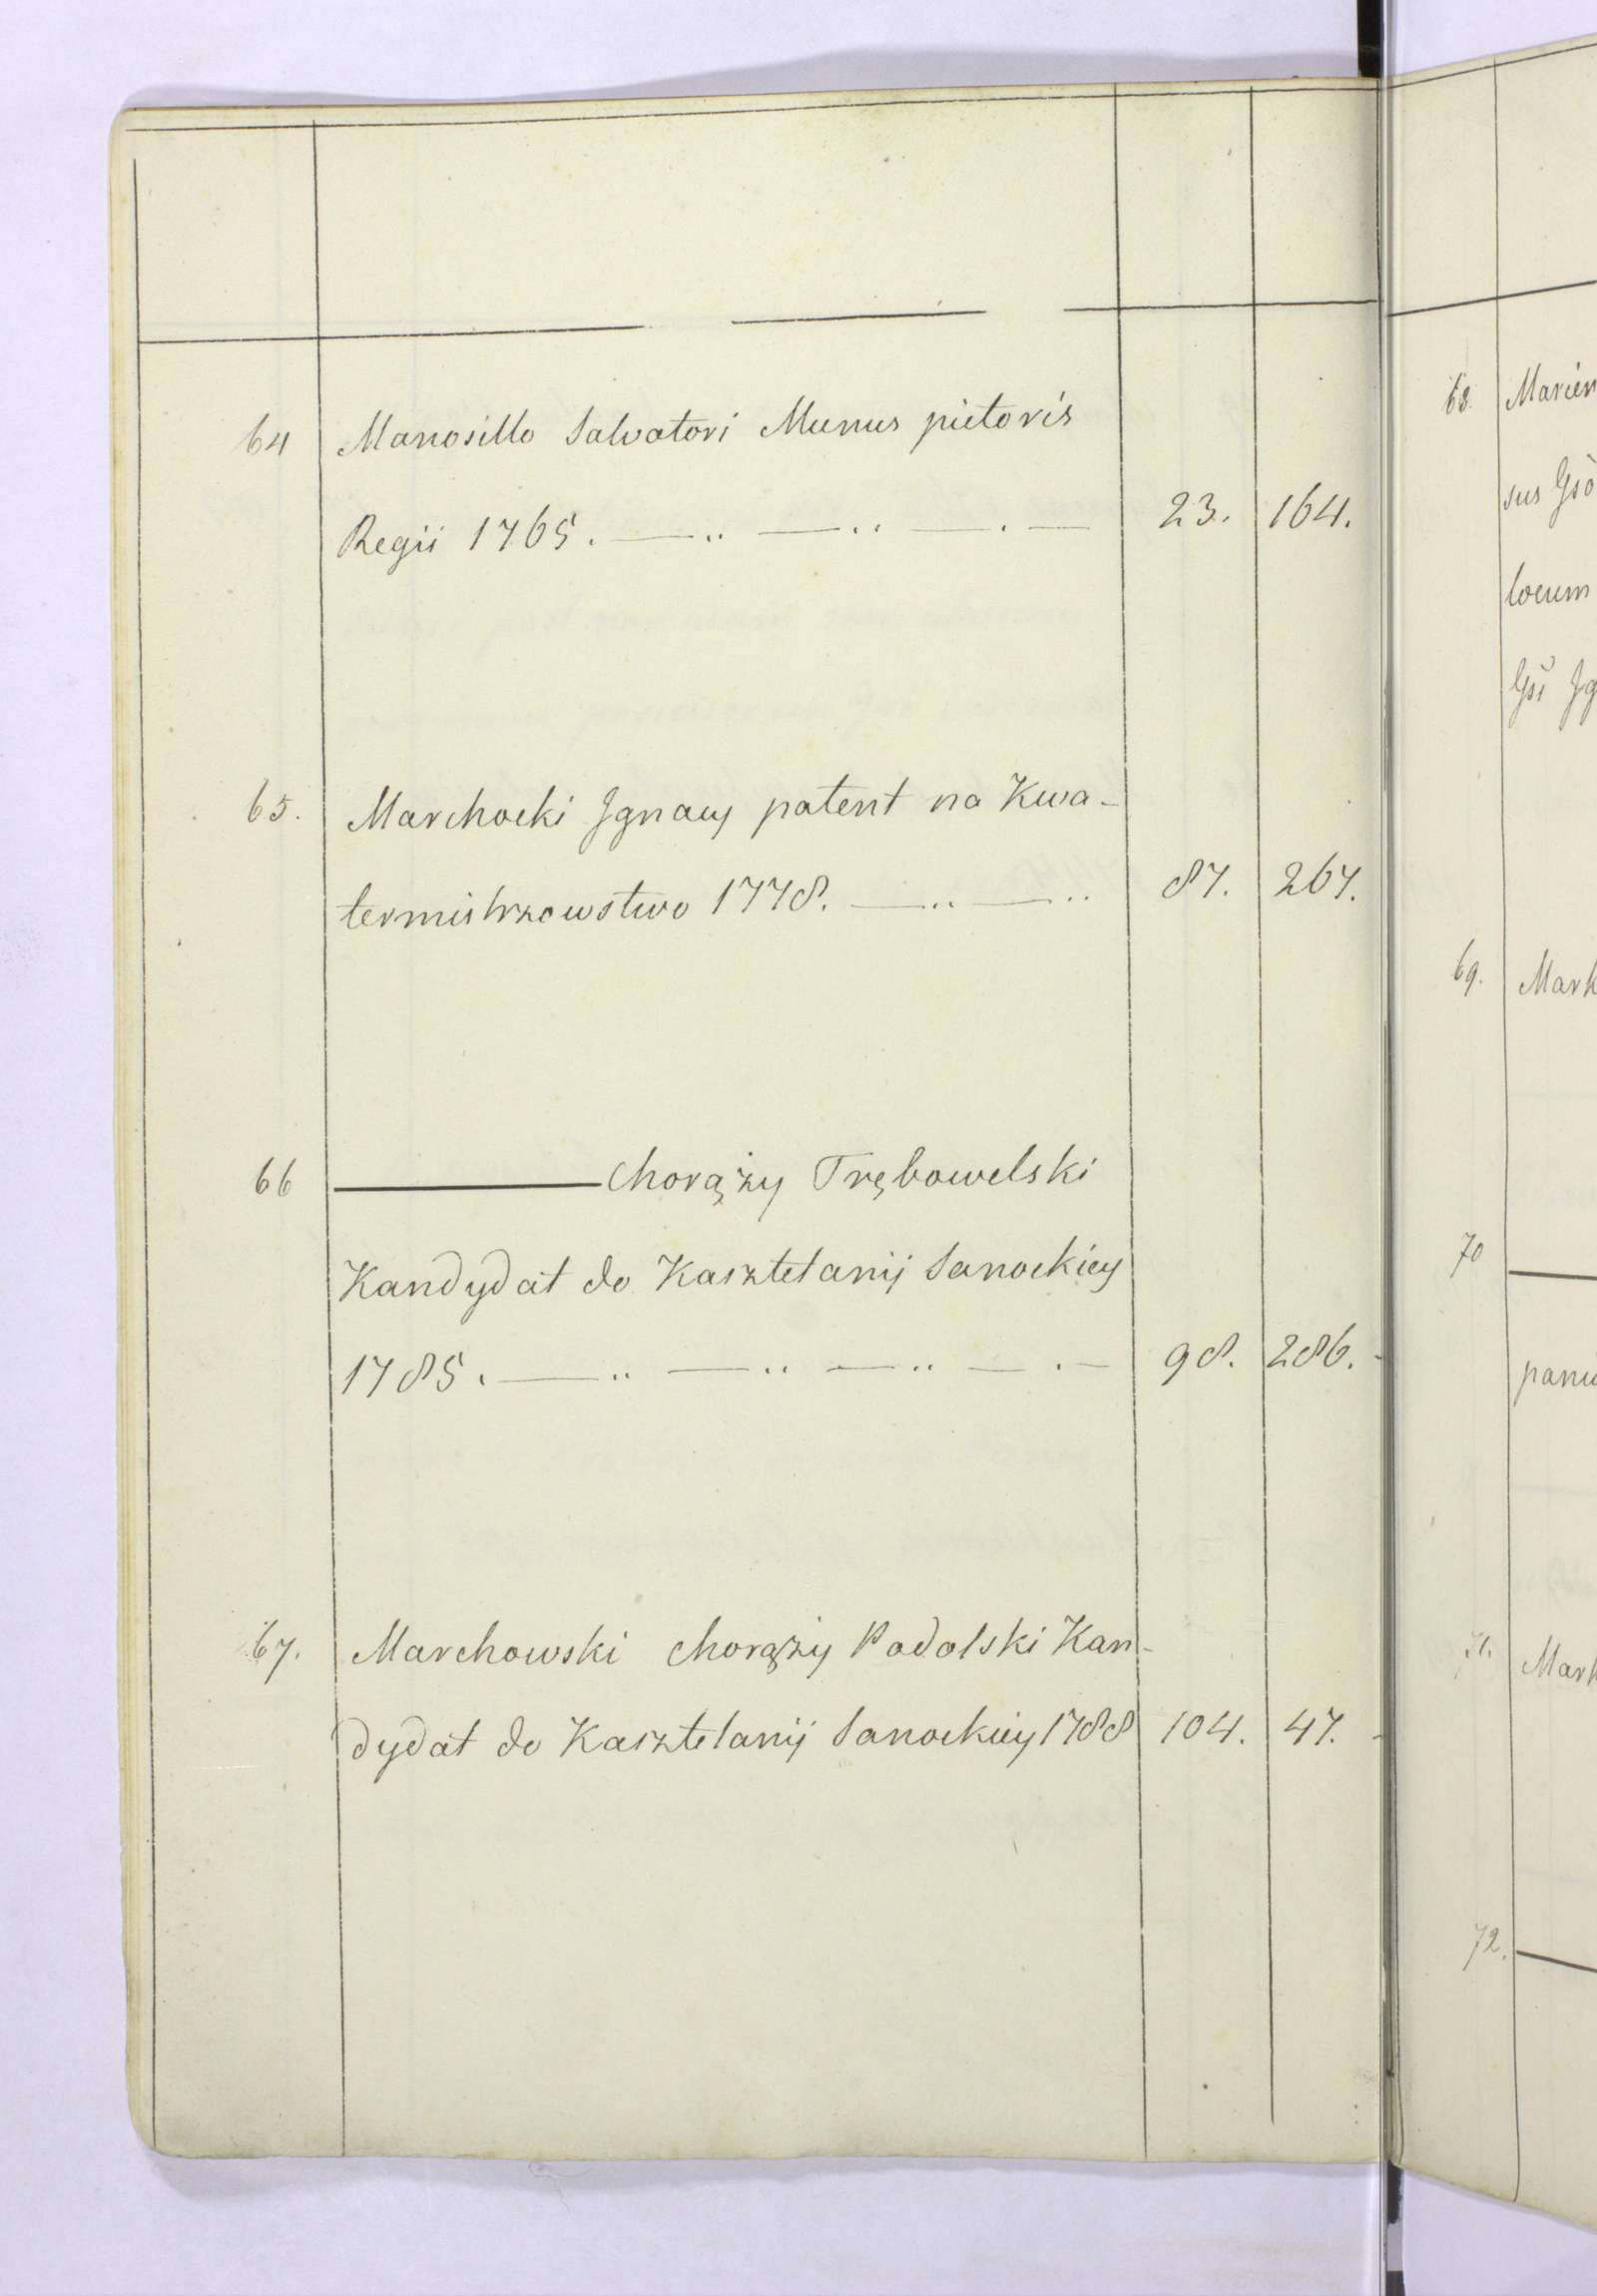 64 Manosillo Salvatori Munus pictoris
Regii 1765. —.. —.. —.— 23. 164.
65. Marchocki Jgnacy patent na Kwa-
termistrzowstwo 1778. —.. —.. 87. 267.
66 ——— Chorąży Trębowelski
Kandydat do Kasztelanij Sanockiey
1785. —.. —.. —.. —.— 98. 286.
67. Marchowski Chorąży Podolski Kan-
dydat do Kasztelanij Sanockiey 1788 104. 47.
68. Marien
sus Gsō
locum
Gsi Jg
69. Mark
70 ———
panu
71. Mark
72. ———